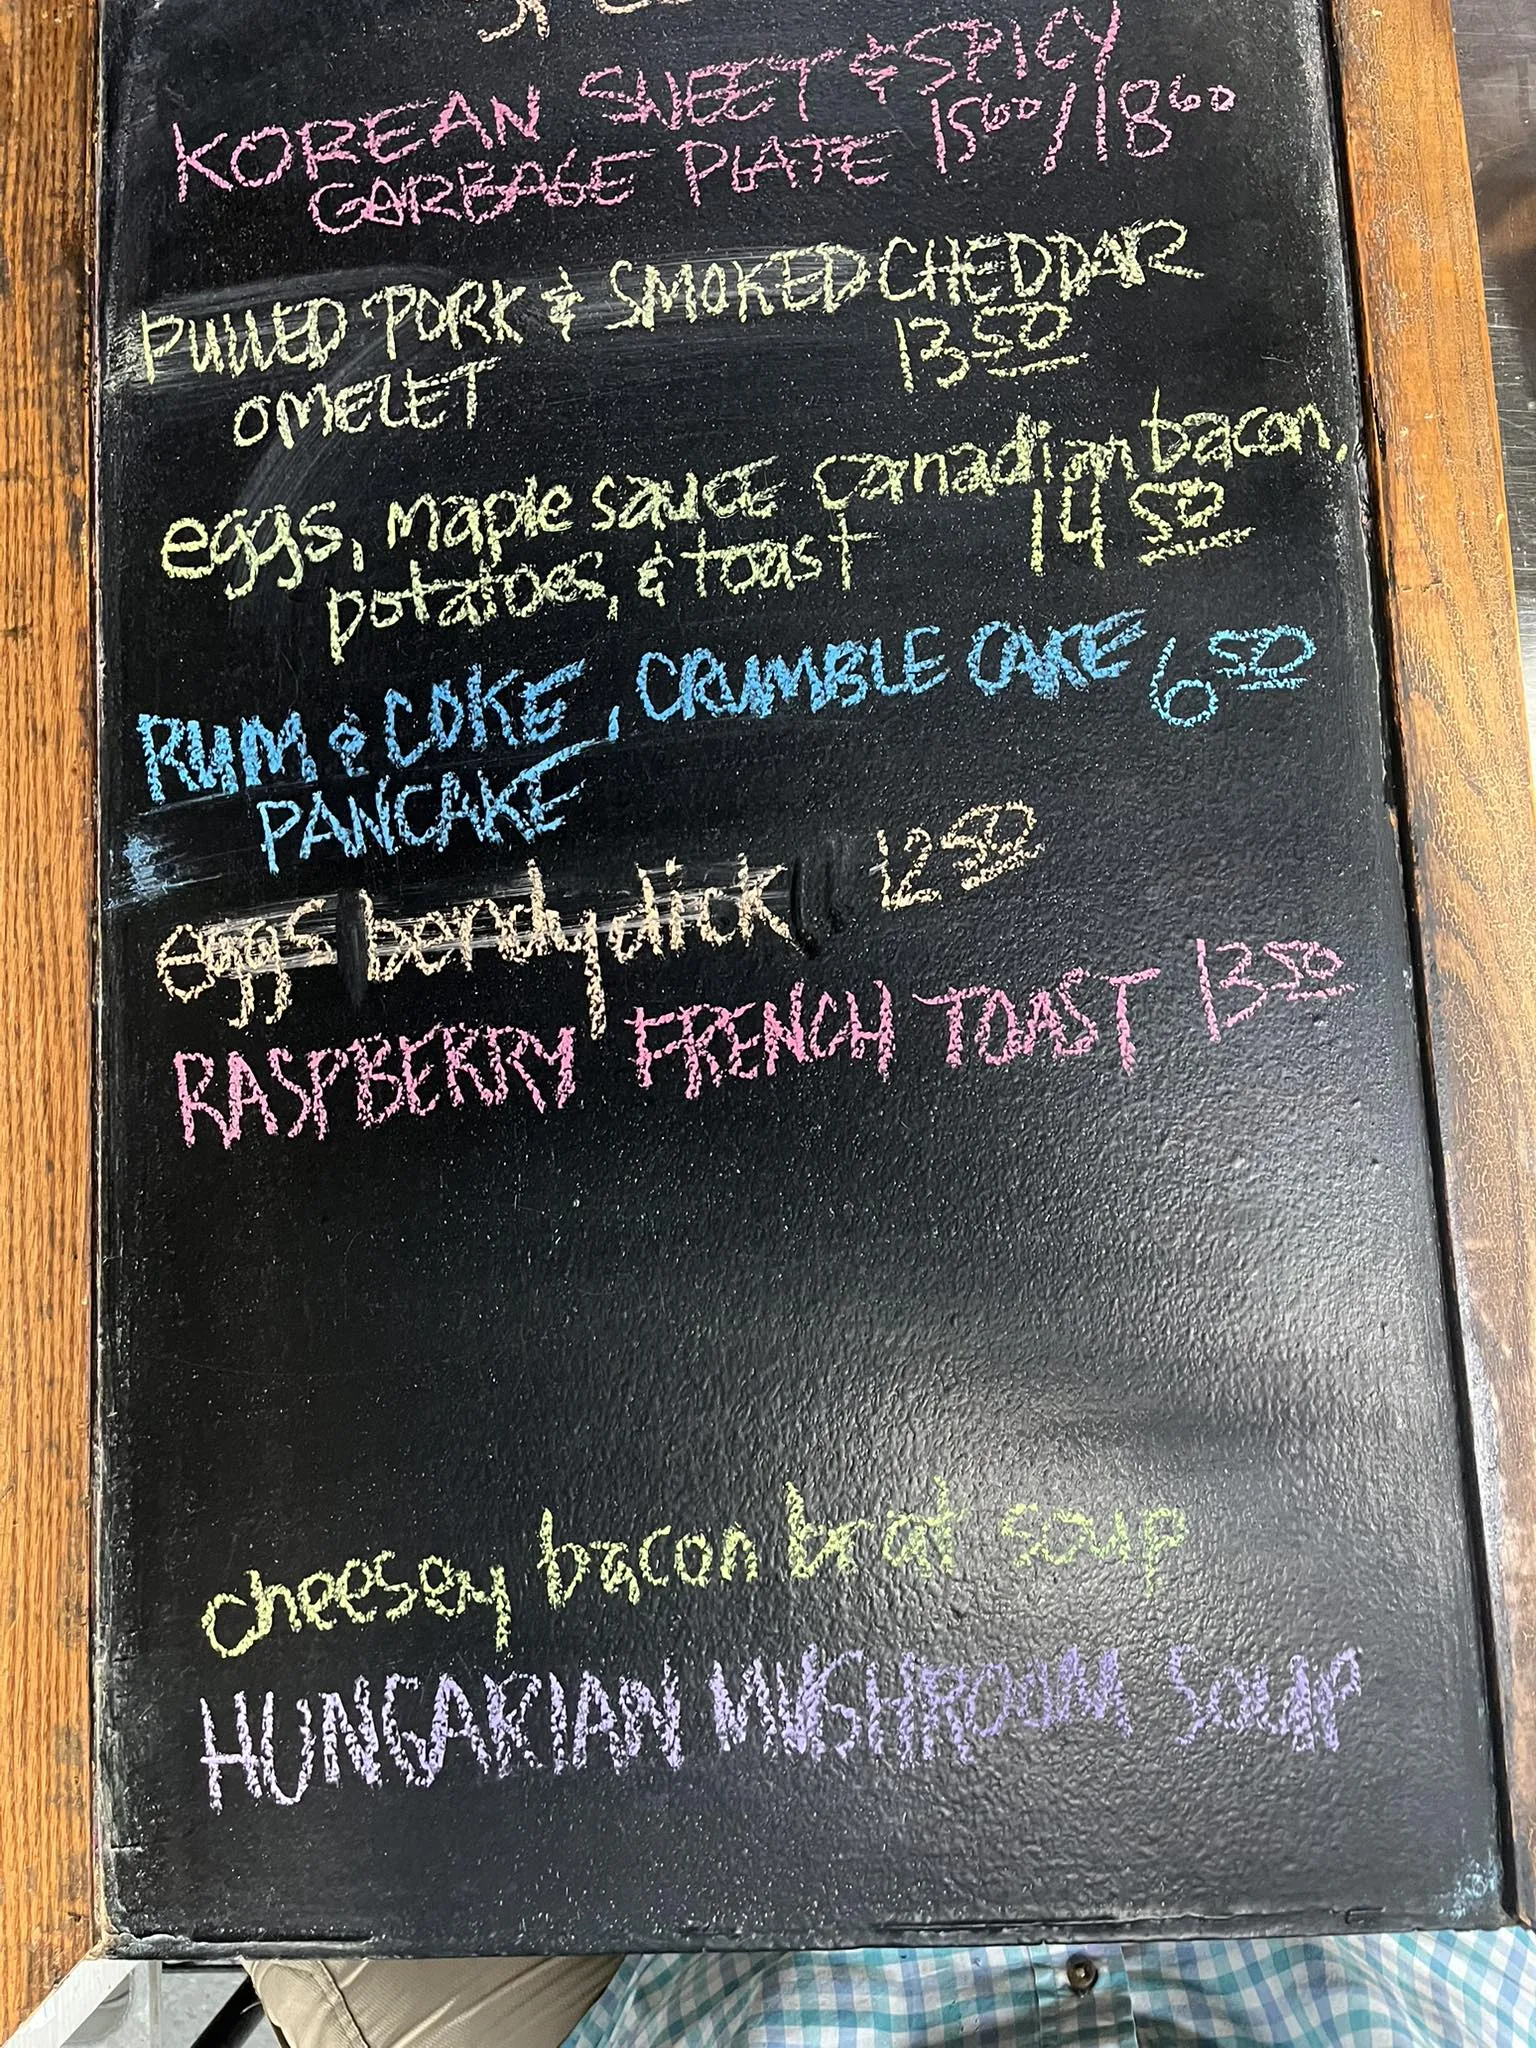 KOREAN SWEET & SPICY
GARBAGE PLATE 15⁶⁰/18⁶⁰
PULLED PORK & SMOKED CHEDDAR
OMELET 13⁵⁰
eggs, maple sauce canadian bacon,
potatoes, & toast 14⁵⁰
RUM & COKE, CRUMBLE CAKE 6⁵⁰
PANCAKE
eggs bendydick 12⁵⁰
RASPBERRY FRENCH TOAST 13⁵⁰
cheesey bacon brat soup
HUNGARIAN MUSHROOM SOUP